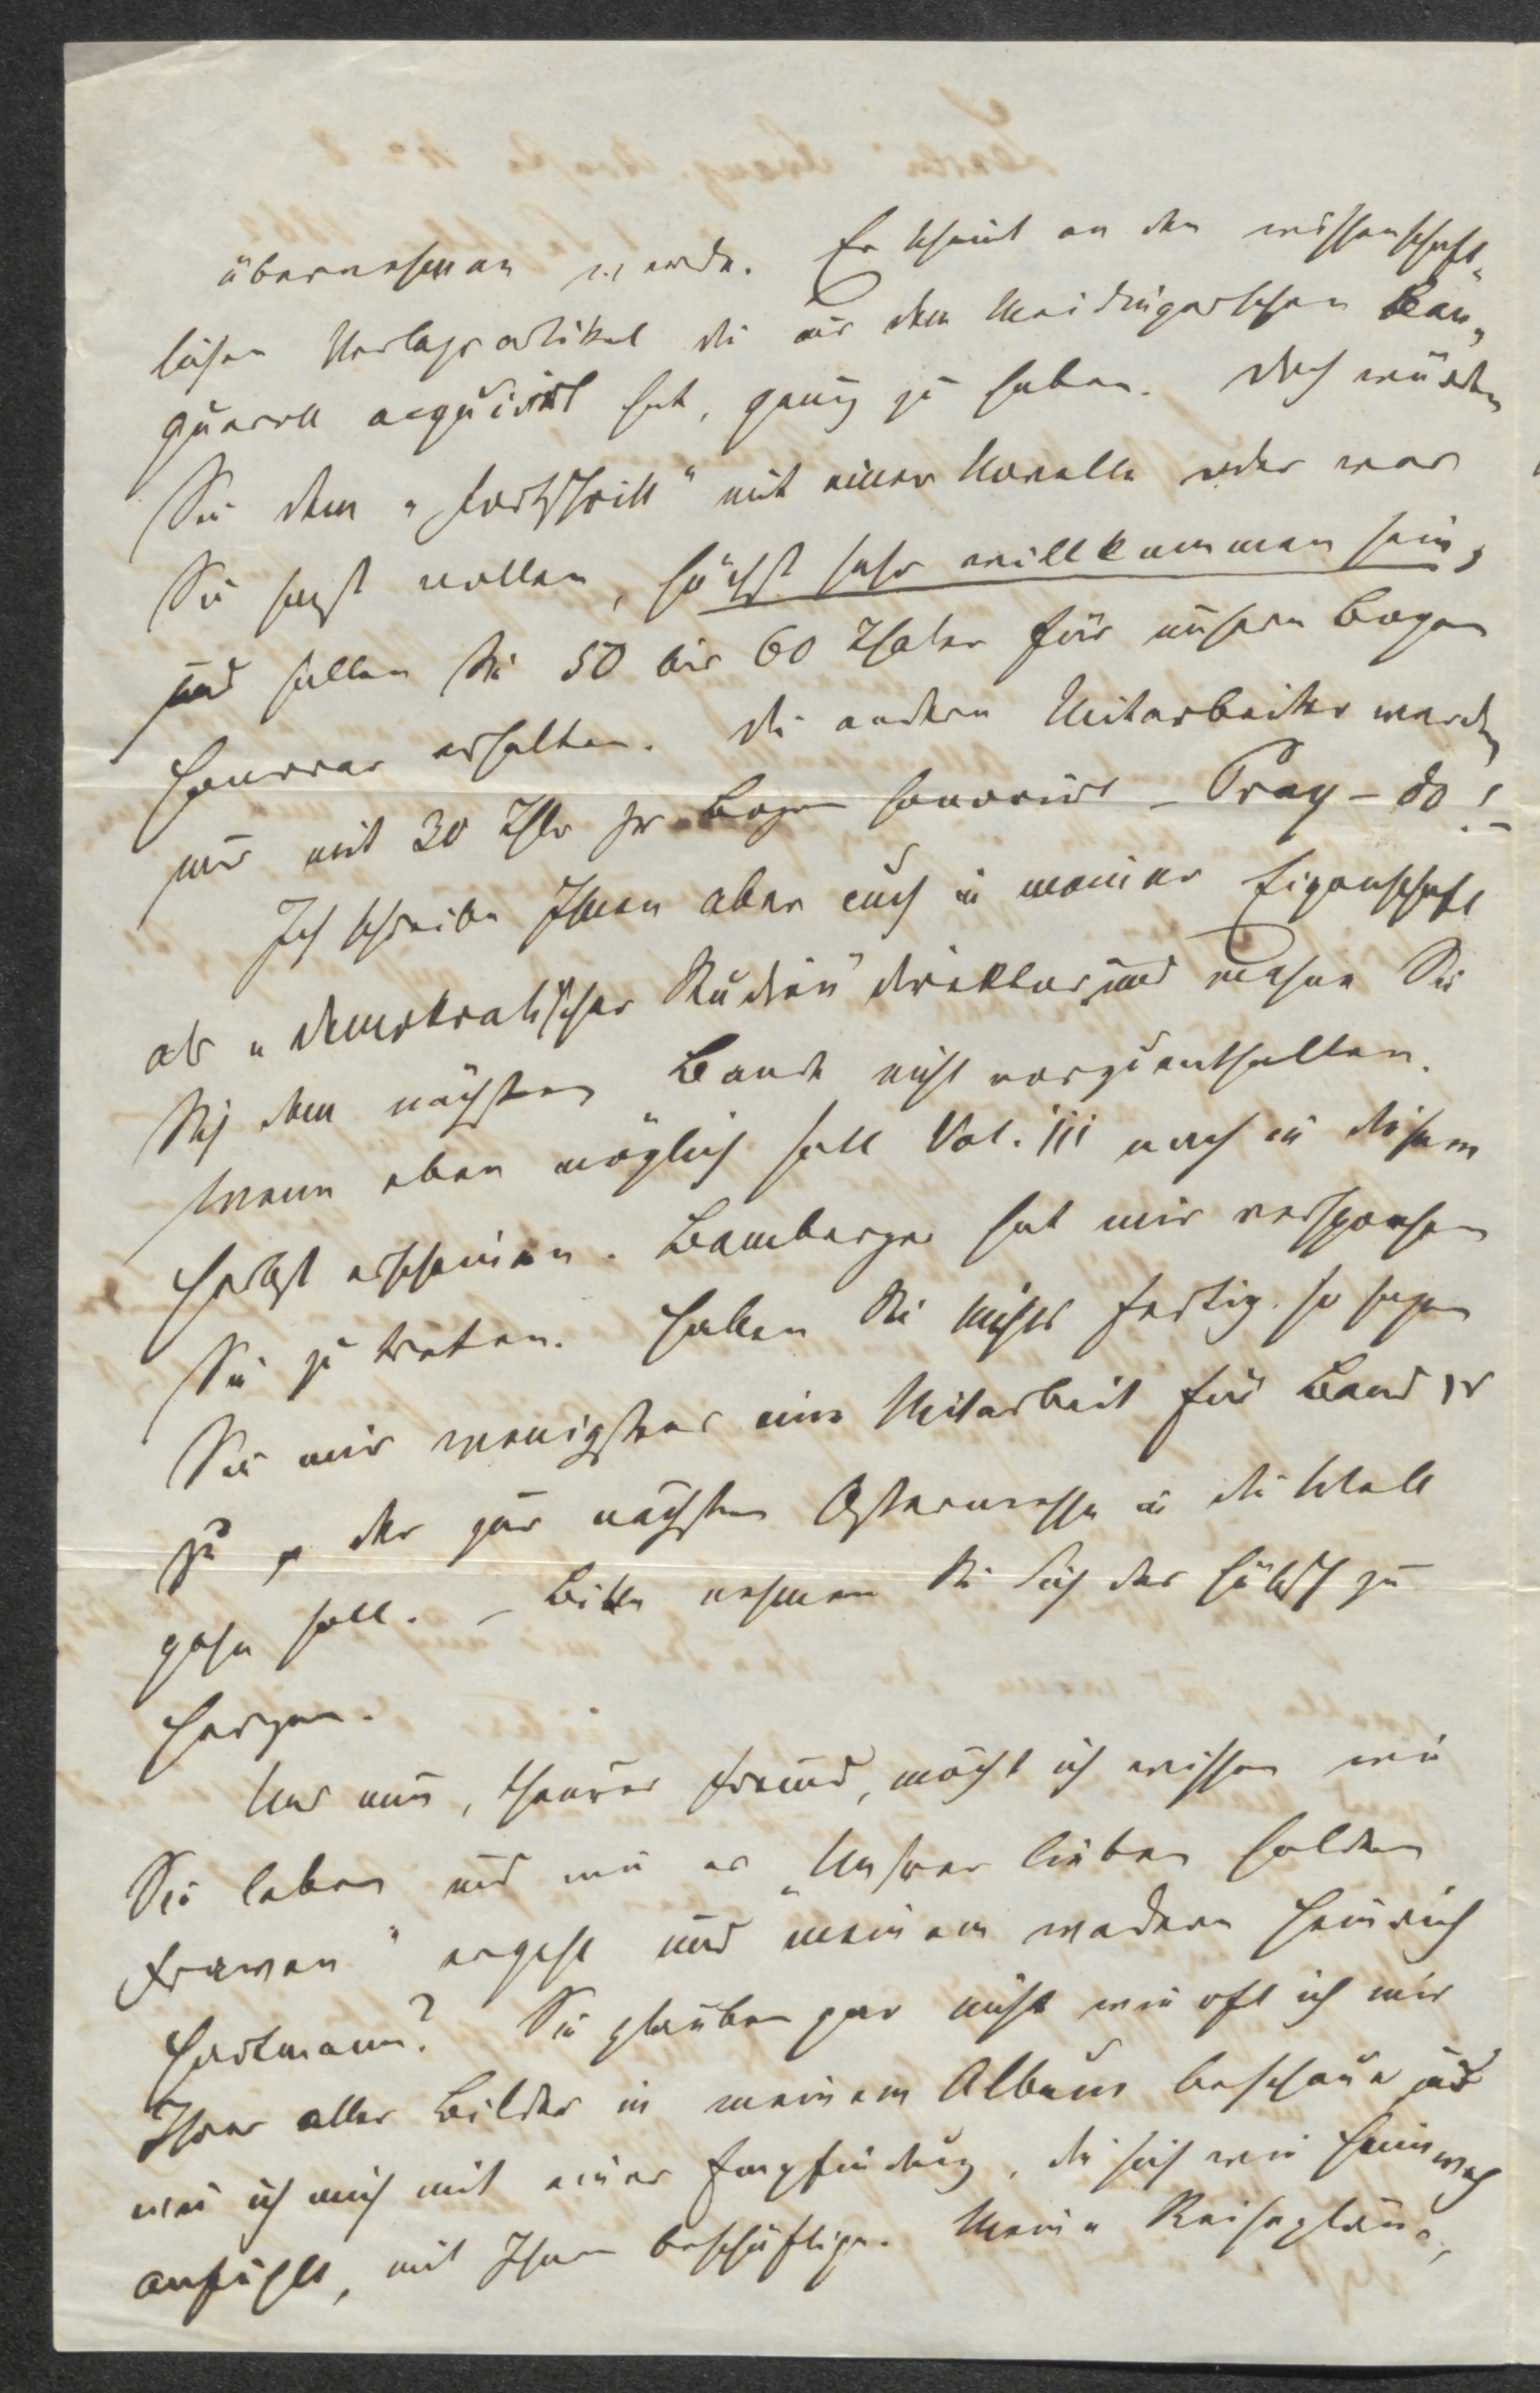 übernehmen werde. Er scheint an den wissenschaft-
lichen Verlagsartikel die aus dem Meidingerschen Ban-
querott acquirirt hat, genug zu haben. Doch würden
Sie dem „Fortschritt“ mit einer Novelle oder was
Sie sonst wollen, höchst sehr willkommen sein,
und sollen Sie 50 bis 60 Thaler für unsern Bogen
Honorar erhalten. Die andern Mitarbeiter werden
nur mit 30 Thlr pr Bogen honorirt – Pray – do!
Ich schreibe Ihnen aber auch in meiner Eigenschaft
als „demokratischer Studien“direktor und mahne Sie
Sich dem nächsten Bande nicht vorzuenthalten.
Wenn eben möglich soll Vol. III noch in diesem
Herbst erscheinen. Bamberger hat mir versprochen
Sie zu treten. Haben Sie Nichts fertig, so sagen
Sie mir wenigstens eine Mitarbeit für Band IV
zu, der zur nächsten Ostermesse in die Welt
gehn soll. – Bitte nehmen Sie Sich das hübsch zu
Herzen.
Und nun, theurer Freund, möcht ich wissen wie
Sie leben und wie es „Unsrer lieben holden
Frawen“ ergeht und meinem wackern Heinrich
Hartmann? Sie glauben gar nicht wie oft ich mir
Ihrer aller Bilder in meinem Album beschaue und
wie ich mich mit einer Empfindung, die sich wie Heimweh
anfühlt, mit Ihnen beschäftige. Meine Reisepläne,